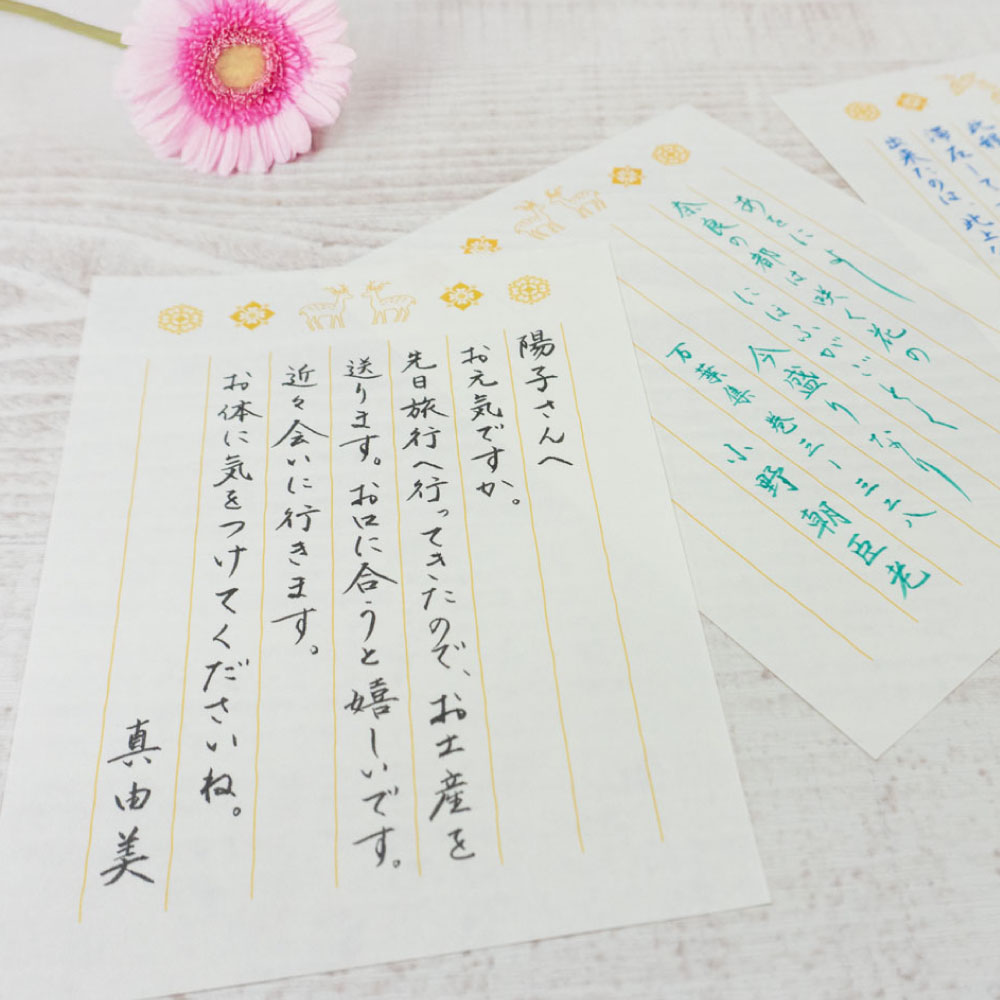 陽子さんへ
お元気ですか。
先日旅行へ行ってきたので、お土産を
送ります。お口に合うと嬉しいです。
近々会いに行きます。
お体に気をつけてくださいね。
真由美
あをによし
奈良の都は咲く花の
にほふがごとく
今盛りなり
万葉集 巻三・三二八
小野朝臣老
出来たのは、此上